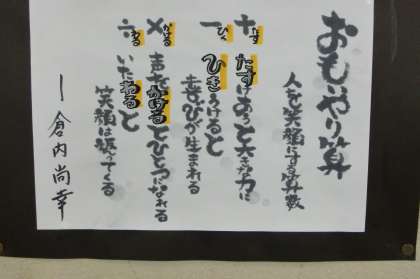 おもいやり算
人を笑顔にする算数
＋たす たすけあうと大きな力に
－ひく ひきうけると
喜びが生まれる
×かける 声をかけるとひとつになれる
÷わる いたわると
笑顔は返ってくる
－倉内尚幸